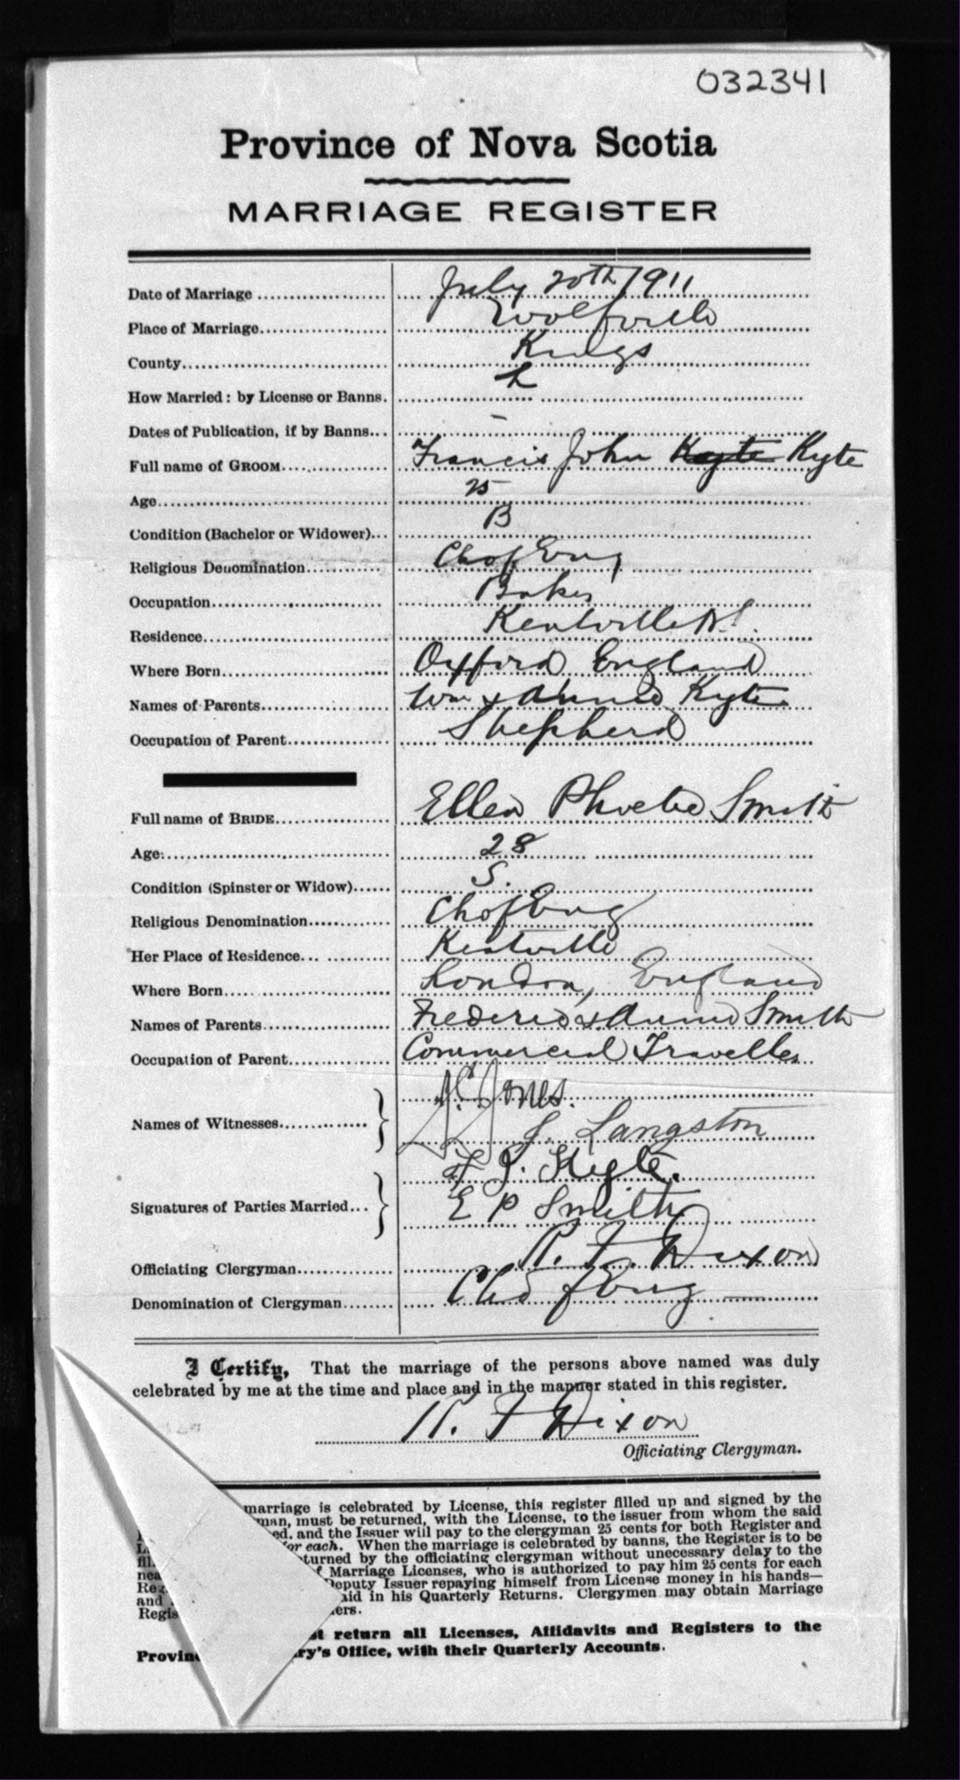 032341
Province of Nova Scotia
MARRIAGE REGISTER
Date of Marriage July 20th 1911
Place of Marriage Wolfville
County Kings
How Married: by License or Banns. L
Dates of Publication, if by Banns -
Full name of GROOM Francis John Kyte Kyte
Age 25
Condition (Bachelor or Widower) B
Religious Denomination Ch of Eng
Occupation Baker
Residence Kentville N.S.
Where Born Oxford England
Names of Parents Wm & Annie Kyte
Occupation of Parent Shepherd
Full name of BRIDE Ellen Phoebe Smith
Age 28
Condition (Spinster or Widow) S.
Religious Denomination Ch of Eng
Her Place of Residence Kentville
Where Born London, England
Names of Parents Frederick & Annie Smith
Occupation of Parent Commercial Traveller
Jones.
Names of Witnesses Langston
F J. Kyte.
Signatures of Parties Married E P Smith
Officiating Clergyman R. F. Dixon
Denomination of Clergyman Ch of Eng
I Certify, That the marriage of the persons above named was duly
celebrated by me at the time and place and in the manner stated in this register.
R. F Dixon
Officiating Clergyman.
marriage is celebrated by License, this register filled up and signed by the
man, must be returned, with the License, to the issuer from whom the said
ed, and the Issuer will pay to the clergyman 25 cents for both Register and
for each. When the marriage is celebrated by banns, the Register is to be
fil turned by the officiating clergyman without unecessary delay to the
nea f Marriage Licenses, who is authorized to pay him 25 cents for each
Reg Deputy Issuer repaying himself from License money in his hands—
and aid in his Quarterly Returns. Clergymen may obtain Marriage
Regis ers.
st return all Licenses, Affidavits and Registers to the
Provin ry's Office, with their Quarterly Accounts.